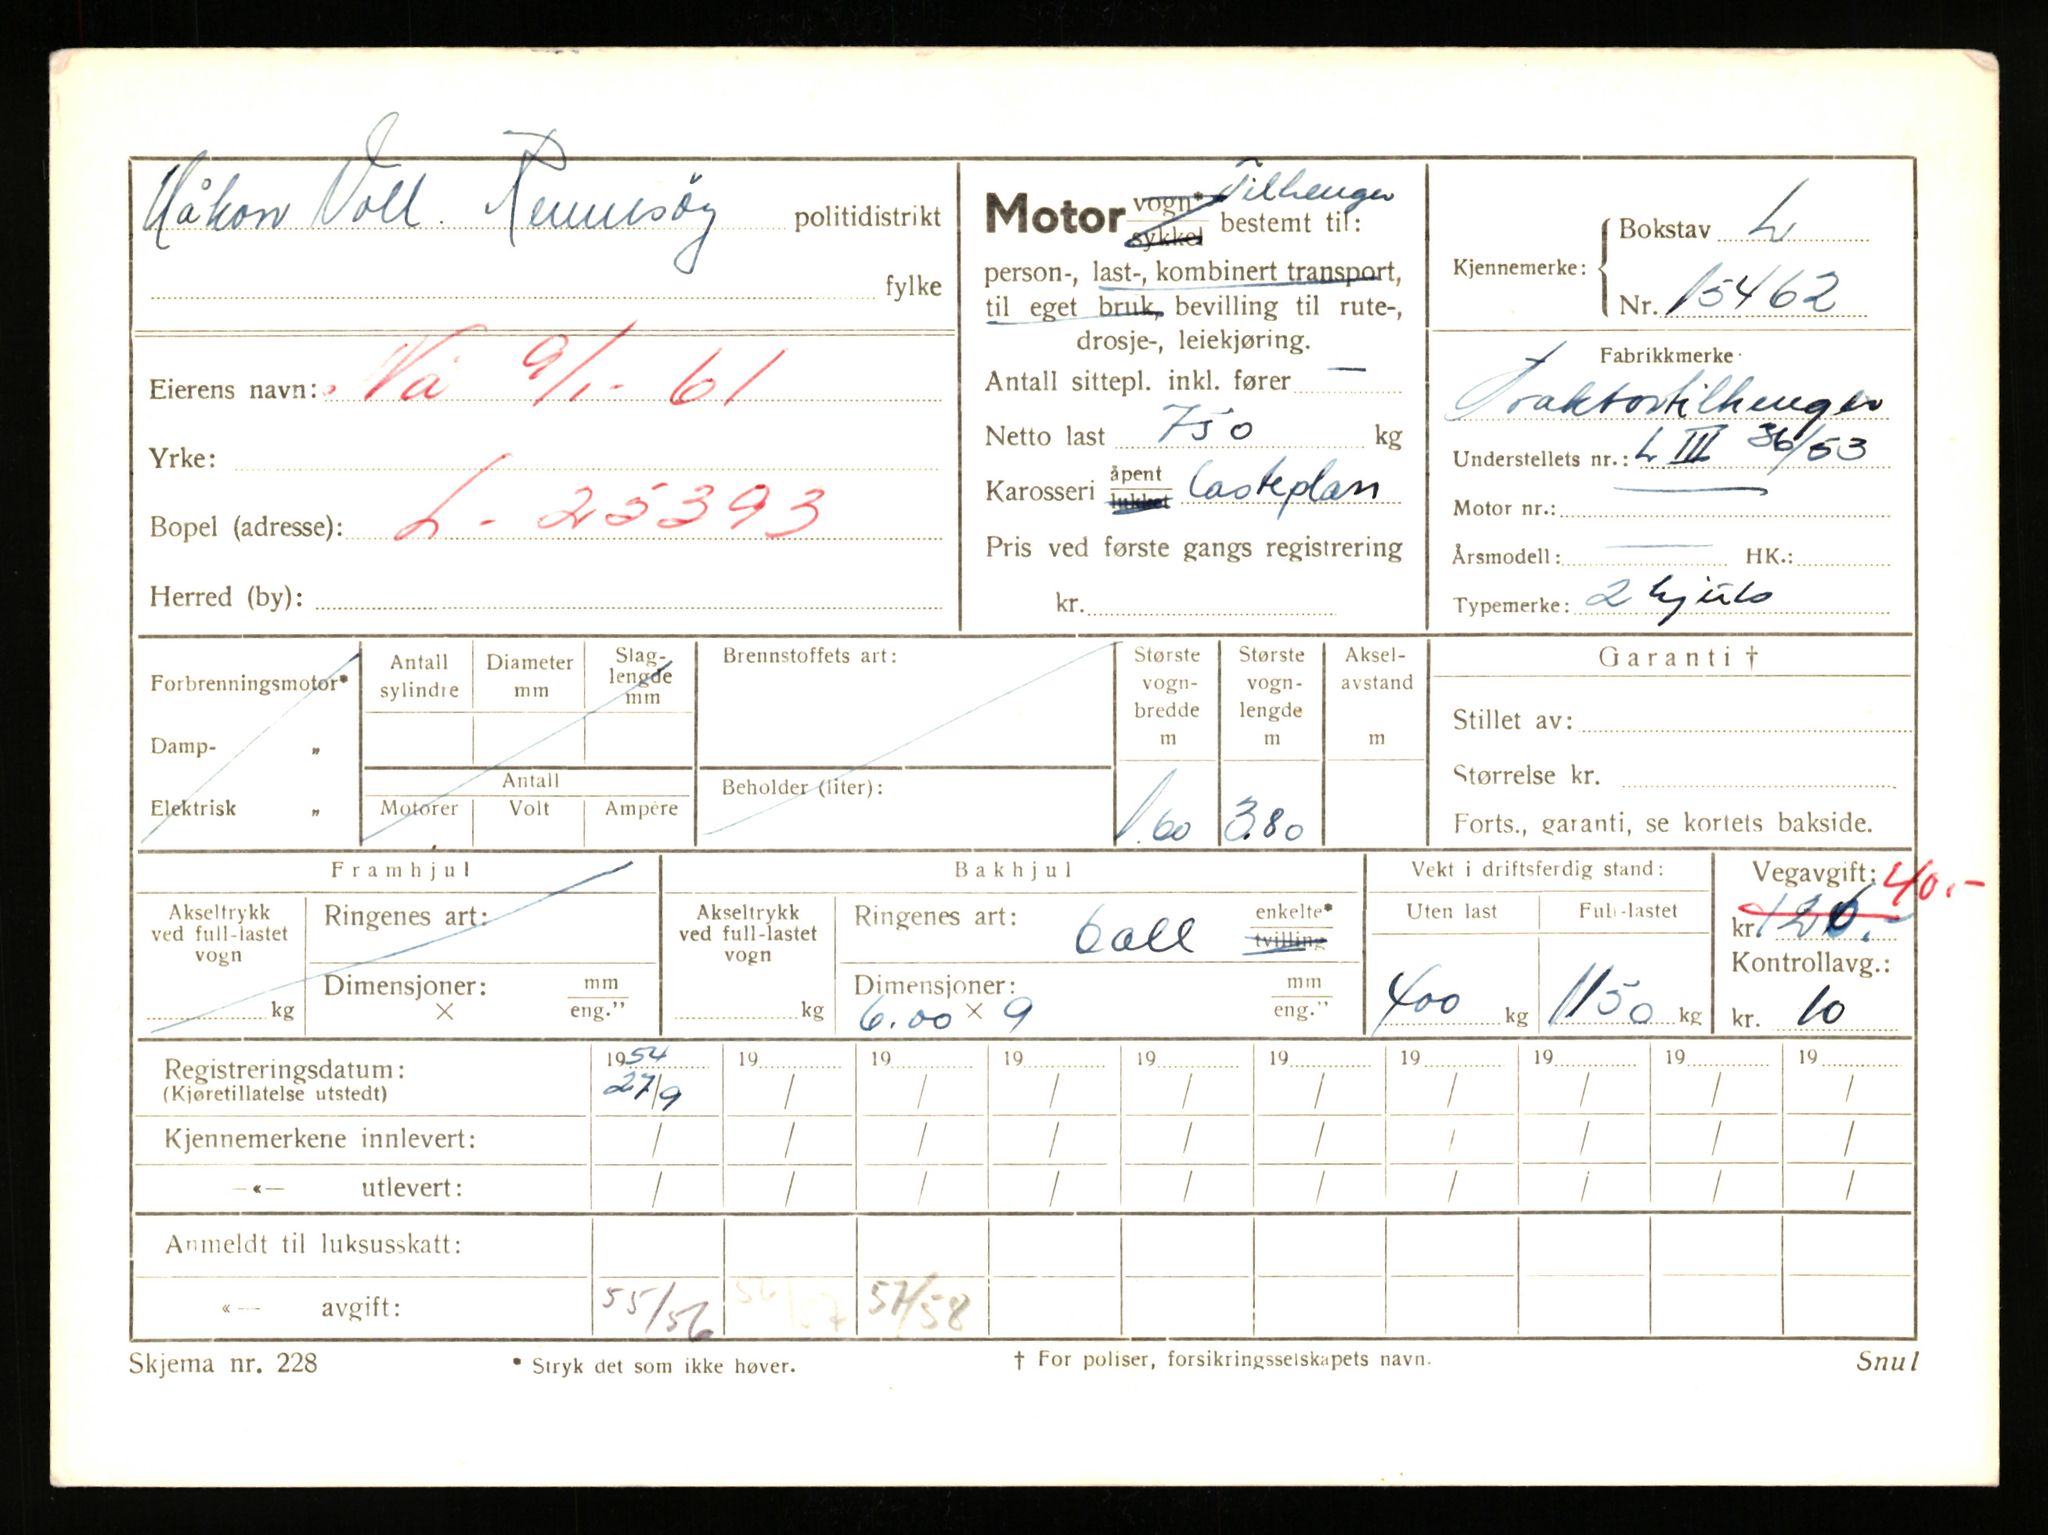 Håkon Voll. Rennesöy politidistrikt
fylke
Eierens navn: Nå 9/1-61
Yrke:
Bopel (adresse): L-25393
Herred (by):
Motor vogn* sykkel Tilhenger bestemt til:
person-, last-, kombinert transport,
til eget bruk, bevilling til rute-,
drosje-, leiekjøring.
Antall sittepl. inkl. fører —
Netto last 750 kg
Karosseri åpent lukket Lasteplan
Pris ved første gangs registrering
kr.
Kjennemerke: Bokstav L
Nr. 15462
Fabrikkmerke
Traktortilhenger
Understellets nr.: L III 36/53
Motor nr.: —
Årsmodell: — HK.:
Typemerke: 2 hjuls
Forbrenningsmotor*
Damp- „
Elektrisk „
Antall sylindre
Diameter mm
Slag-lengde mm
Antall
Motorer Volt Ampére
Brennstoffets art:
Beholder (liter):
Største vogn-bredde m 1.60
Største vogn-lengde m 3.80
Aksel-avstand m
Garanti †
Stillet av:
Størrelse kr.
Forts., garanti, se kortets bakside.
Framhjul
Akseltrykk ved full-lastet vogn kg
Ringenes art:
Dimensjoner: × mm eng."
Bakhjul
Akseltrykk ved full-lastet vogn kg
Ringenes art: ball enkelte* tvilling
Dimensjoner: 6.00 × 9 mm eng."
Vekt i driftsferdig stand:
Uten last 400 kg
Full-lastet 1150 kg
Vegavgift: 40.-
kr. 120.-
Kontrollavg.:
kr. 10
Registreringsdatum: 1954 19 19 19 19 19 19 19 19 19
(Kjøretillatelse utstedt) 27/9 / / / / / / / / /
Kjennemerkene innlevert: / / / / / / / / / /
—«— utlevert: / / / / / / / / / /
Anmeldt til luksusskatt:
«— avgift: 55/56 56/57 57/58
Skjema nr. 228
* Stryk det som ikke høver.
† For poliser, forsikringsselskapets navn.
Snul